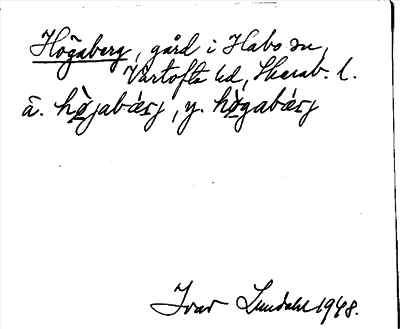 Högaberg, gård i Habo sn,
Vartofta hd, Skarab. l.
ä. hø̀jabærj, y. hø̀gabærj
Ivar Lundahl 1948.